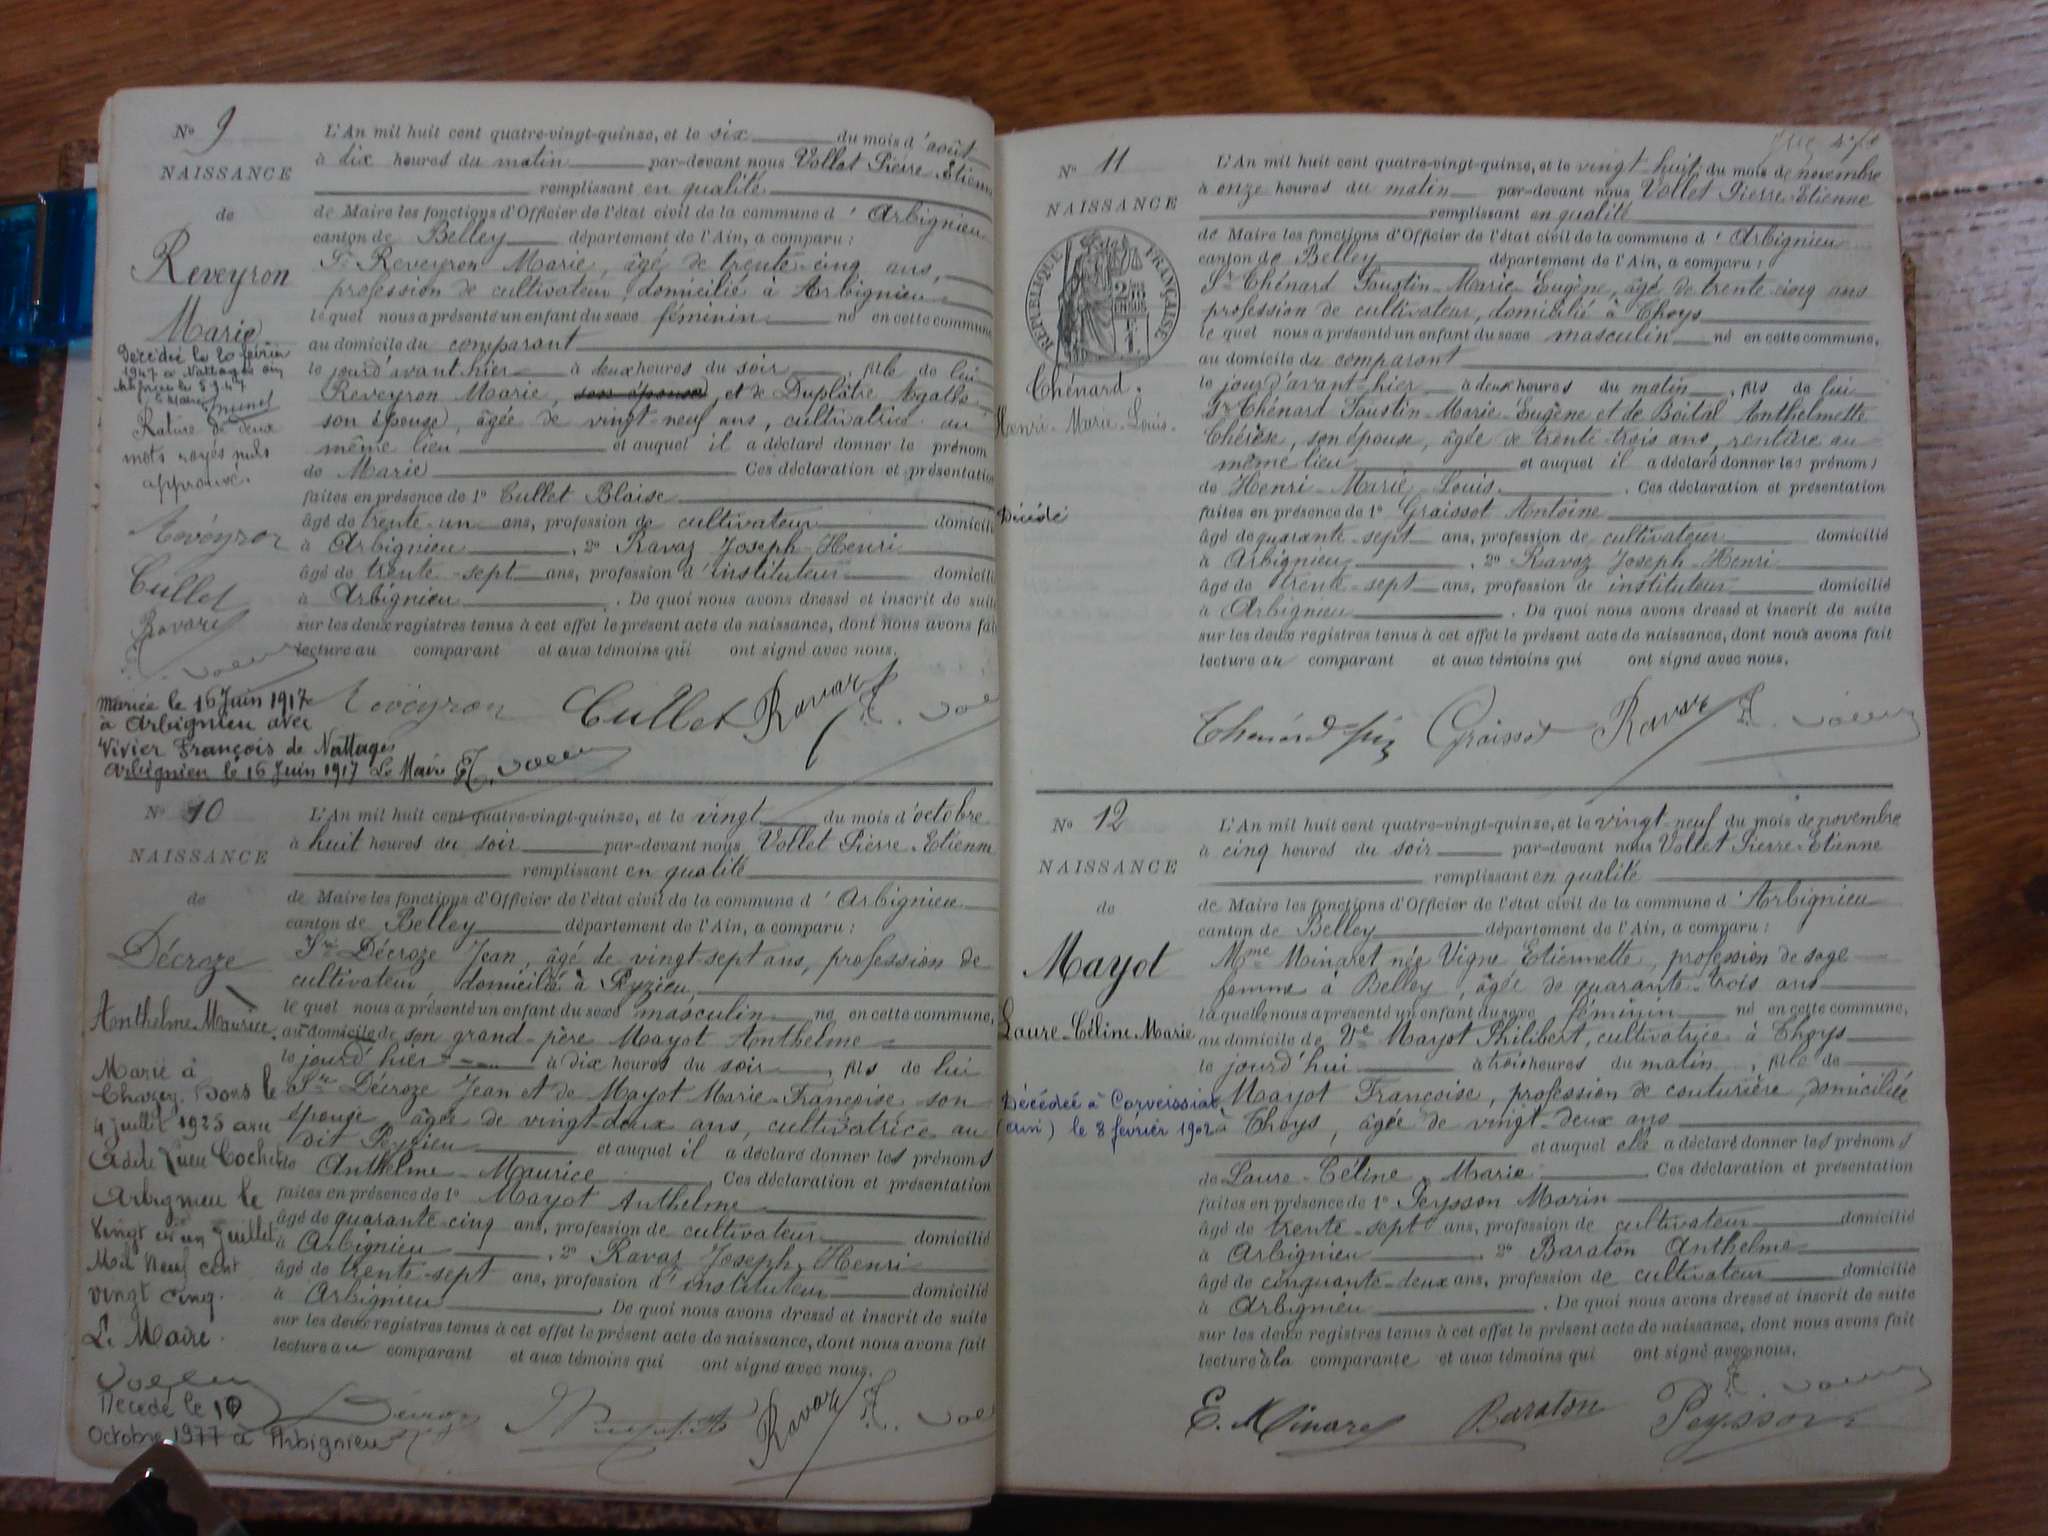 N° 9
NAISSANCE
de
Reveyron
Marie
Décédée le 20 février
1947 à Nattages Ain
le 8 9 47
Rature de deux
mots rayés nuls
approuvé.
Reveyron
Cullet
Ravaz
L'An mil huit cent quatre-vingt-quinze, et le six du mois d'août
à dix heures du matin par-devant nous Vollet Pierre-Etienne
remplissant en qualité
de Maire les fonctions d'Officier de l'état civil de la commune d'Arbignieu
canton de Belley département de l'Ain, a comparu :
Sr Reveyron Marie, âgé de trente-cinq ans,
profession de cultivateur, domicilié à Arbignieu
lequel nous a présenté un enfant du sexe féminin né en cette commune
au domicile du comparant
le jourd'avant hier à deux heures du soir, fille de lui
Reveyron Marie, son épouse, et de Duplâtre Agathe
son épouse, âgée de vingt-neuf ans, cultivatrice au
même lieu et auquel il a déclaré donner le prénom
de Marie Ces déclaration et présentation
faites en présence de 1° Cullet Blaise
âgé de trente-un ans, profession de cultivateur domicilié
à Arbignieu, 2° Ravaz Joseph-Henri
âgé de trente-sept ans, profession d'instituteur domicilié
à Arbignieu. De quoi nous avons dressé et inscrit de suite
sur les deux registres tenus à cet effet le présent acte de naissance, dont nous avons fait
lecture au comparant et aux témoins qui ont signé avec nous.
Reveyron Cullet Ravaz
mariée le 16 Juin 1917
à Arbignieu avec
Vivier François de Nattages
Arbignieu le 16 Juin 1917 Le Maire
N° 10
NAISSANCE
de
Décroze
Anthelme-Maurice.
Marié à
Chazey-Bons le
4 juillet 1925 avec
Arbignieu le
Vingt et un juillet
Mil neuf cent
vingt cinq.
Le Maire.
Décédé le 10
Octobre 1977 à Arbignieu
L'An mil huit cent quatre-vingt-quinze, et le vingt du mois d'octobre
à huit heures du soir par-devant nous Vollet Pierre-Etienne
remplissant en qualité
de Maire les fonctions d'Officier de l'état civil de la commune d'Arbignieu
canton de Belley département de l'Ain, a comparu :
Sr Décroze Jean, âgé de vingt-sept ans, profession de
cultivateur, domicilié à Pyzieu,
lequel nous a présenté un enfant du sexe masculin né en cette commune,
au domicile de son grand-père Mayot Anthelme
le jourd'hier à dix heures du soir, fils de lui
Sr Décroze Jean et de Mayot Marie-Françoise son
épouse, âgée de vingt-deux ans, cultivatrice au
dit Peyzieu et auquel il a déclaré donner les prénoms
de Anthelme-Maurice. Ces déclaration et présentation
faites en présence de 1° Mayot Anthelme
âgé de quarante-cinq ans, profession de cultivateur domicilié
à Arbignieu, 2° Ravaz Joseph-Henri
âgé de trente-sept ans, profession d'instituteur domicilié
à Arbignieu. De quoi nous avons dressé et inscrit de suite
sur les deux registres tenus à cet effet le présent acte de naissance, dont nous avons fait
lecture au comparant et aux témoins qui ont signé avec nous.
Ravaz
N° 11
NAISSANCE
RÉPUBLIQUE FRANÇAISE
Chénard.
Henri-Marie-Louis.
Décédé
L'An mil huit cent quatre-vingt-quinze, et le vingt-huit du mois de novembre
à onze heures du matin par-devant nous Vollet Pierre-Etienne
remplissant en qualité
de Maire les fonctions d'Officier de l'état civil de la commune d'Arbignieu
canton de Belley département de l'Ain, a comparu :
Sr Chénard Faustin-Marie-Eugène, âgé de trente-cinq ans
profession de cultivateur, domicilié à Thoys
lequel nous a présenté un enfant du sexe masculin né en cette commune,
au domicile du comparant
le jourd'avant-hier à deux heures du matin, fils de lui
Sr Chénard Faustin-Marie-Eugène et de Boital Anthelmette
Thérèse, son épouse, âgée de trente-trois ans, rentière au
même lieu et auquel il a déclaré donner les prénoms
de Henri-Marie-Louis. Ces déclaration et présentation
faites en présence de 1° Graisset Antoine
âgé de quarante-sept ans, profession de cultivateur domicilié
à Arbignieu, 2° Ravaz Joseph-Henri
âgé de trente-sept ans, profession de instituteur domicilié
à Arbignieu. De quoi nous avons dressé et inscrit de suite
sur les deux registres tenus à cet effet le présent acte de naissance, dont nous avons fait
lecture au comparant et aux témoins qui ont signé avec nous.
Graisset Ravaz
N° 12
NAISSANCE
de
Mayot
Laure-Céline-Marie
Décédée à Corveissiat
(Ain) le 8 février 1902
L'An mil huit cent quatre-vingt-quinze, et le vingt-neuf du mois de novembre
à cinq heures du soir par-devant nous Vollet Pierre-Etienne
remplissant en qualité
de Maire les fonctions d'Officier de l'état civil de la commune d'Arbignieu
canton de Belley département de l'Ain, a comparu :
Mme Minaret née Vigne Etiennette, profession de sage
femme à Belley, âgée de quarante-trois ans
laquelle nous a présenté un enfant du sexe féminin né en cette commune,
au domicile de Ve Mayot Philibert, cultivatrice à Thoys
le jourd'hui à trois heures du matin, fille de
Mayot Francoise, profession de couturière, domiciliée
à Thoys, âgée de vingt-deux ans
et auquel elle a déclaré donner les prénoms
de Laure-Céline-Marie. Ces déclaration et présentation
faites en présence de 1° Peysson Marin
âgé de trente-sept ans, profession de cultivateur domicilié
à Arbignieu, 2° Baraton Anthelme
âgé de cinquante-deux ans, profession de cultivateur domicilié
à Arbignieu. De quoi nous avons dressé et inscrit de suite
sur les deux registres tenus à cet effet le présent acte de naissance, dont nous avons fait
lecture à la comparante et aux témoins qui ont signé avec nous.
E. Minaret Baraton Peysson